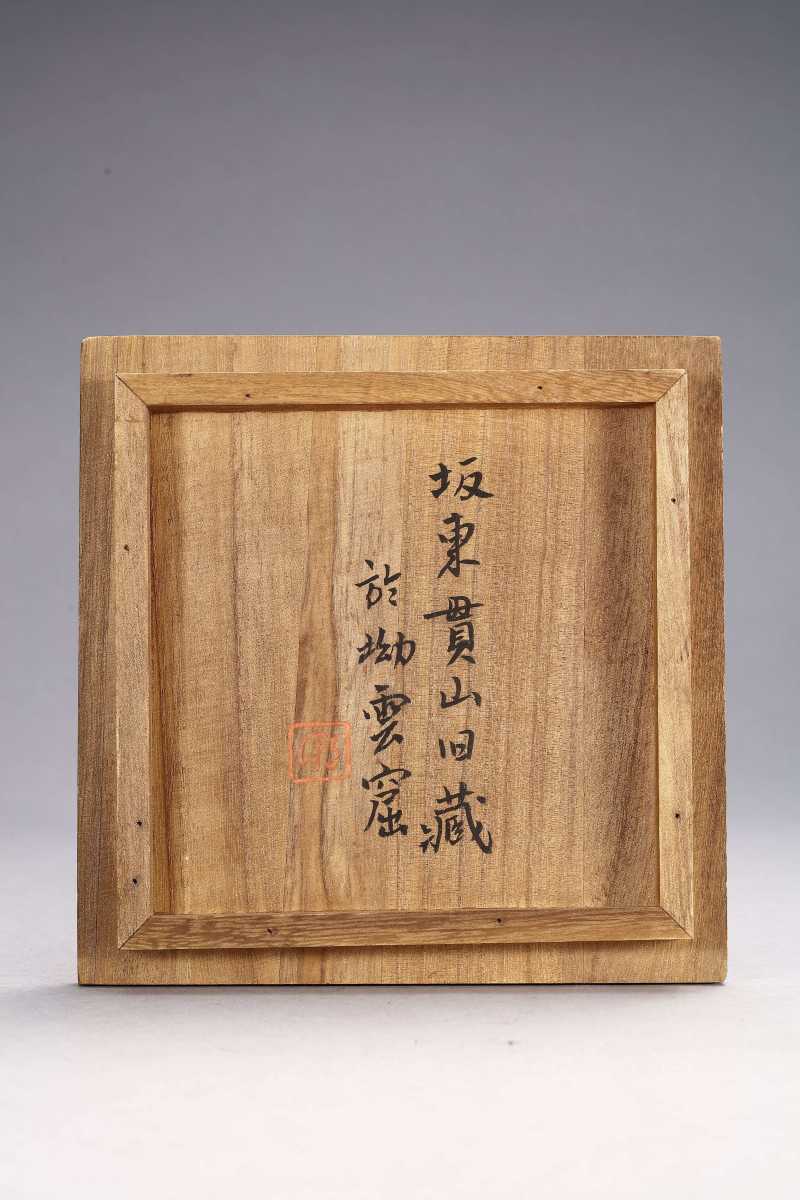 坂東貫山旧藏
於坳雲窟